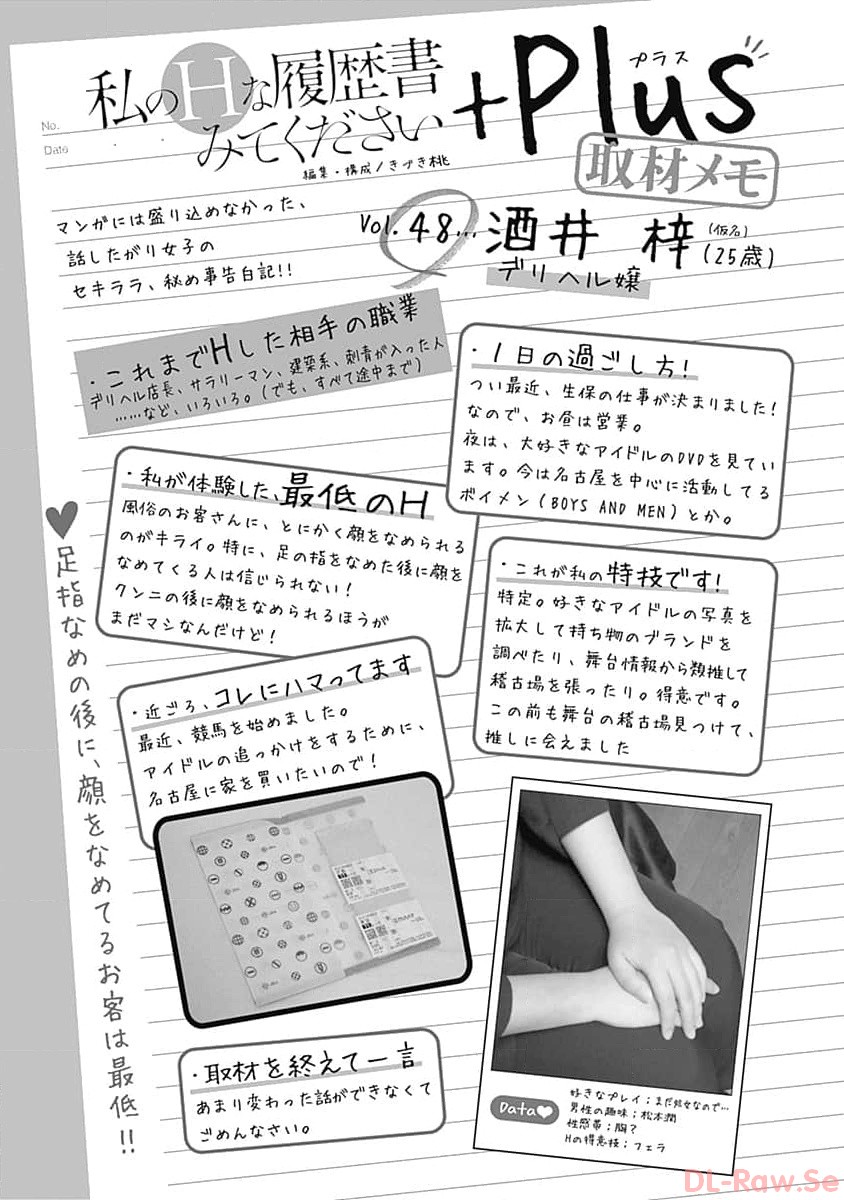 No.
Date
私のHな履歴書
みてください
+Plus
プラス
編集・構成/きづき桃
取材メモ
マンガには盛り込めなかった、
話したがり女子の
セキララ、秘め事告白記!!
Vol.48…酒井 梓(仮名)(25歳)
デリヘル嬢
・これまでHした相手の職業
デリヘル店長、サラリーマン、建築系、刺青が入った人
……など、いろいろ。(でも、すべて途中まで)
・1日の過ごし方!
つい最近、生保の仕事が決まりました!
なので、お昼は営業。
夜は、大好きなアイドルのDVDを見てい
ます。今は名古屋を中心に活動してる
ボイメン(BOYS AND MEN)とか。
・私が体験した、最低のH
風俗のお客さんに、とにかく顔をなめられる
のがキライ。特に、足の指をなめた後に顔を
なめてくる人は信じられない!
クンニの後に顔をなめられるほうが
まだマシなんだけど!
・これが私の特技です!
特定。好きなアイドルの写真を
拡大して持ち物のブランドを
調べたり、舞台情報から類推して
稽古場を張ったり。得意です。
この前も舞台の稽古場見つけて、
推しに会えました
♥足指なめの後に、顔をなめてるお客は最低!!
・近ごろ、コレにハマってます
最近、競馬を始めました。
アイドルの追っかけをするために、
名古屋に家を買いたいので!
・取材を終えて一言
あまり変わった話ができなくて
ごめんなさい。
Data♥
好きなプレイ;まだ処女なので…
男性の趣味;松本潤
性感帯;胸?
Hの得意技;フェラ
DL-Raw.Se